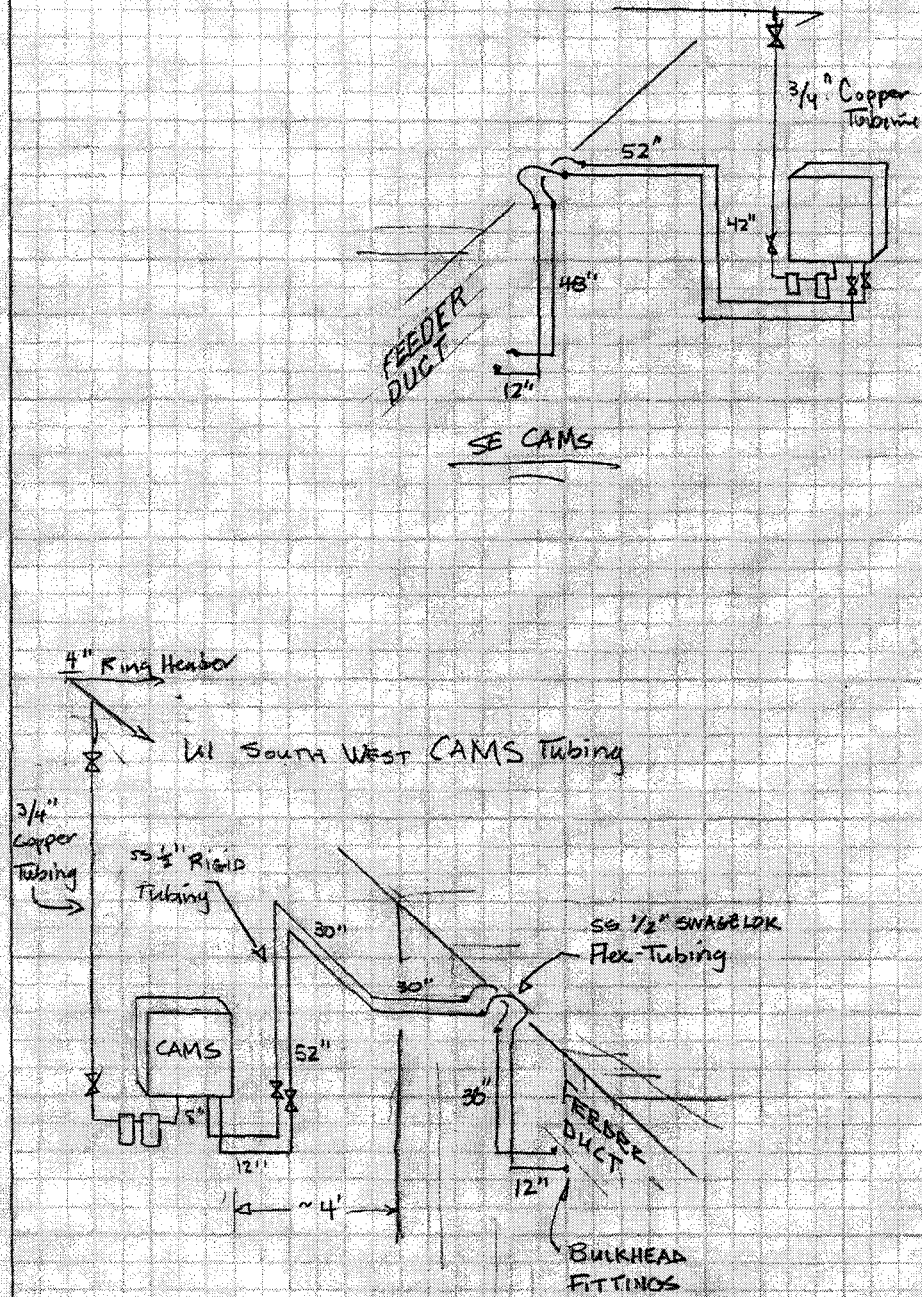 3/4" Copper
52"
42"
48"
FEEDER
DUCT
12"
SE CAMs
4" Ring Header
U1 SOUTH WEST CAMS Tubing
3/4"
Copper
Tubing
SS 1/2" RIGID
Tubing
30"
30"
SS 1/2" SWAGELOK
Flex-Tubing
CAMS
52"
36"
8"
FEEDER
DUCT
12"
12"
~4'
BULKHEAD
FITTINGS